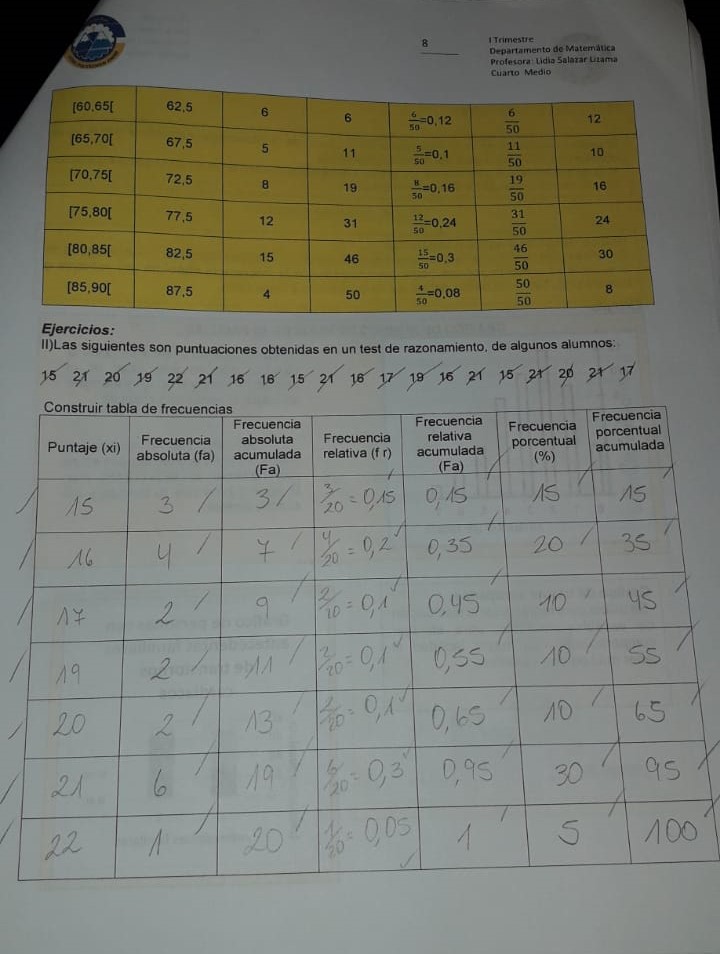 8
I Trimestre
Departamento de Matemática
Profesora: Lidia Salazar Lizama
Cuarto Medio
[60,65[ 62,5 6 6 6/50=0,12 6/50 12
[65,70[ 67,5 5 11 5/50=0,1 11/50 10
[70,75[ 72,5 8 19 8/50=0,16 19/50 16
[75,80[ 77,5 12 31 12/50=0,24 31/50 24
[80,85[ 82,5 15 46 15/50=0,3 46/50 30
[85,90[ 87,5 4 50 4/50=0,08 50/50 8
Ejercicios:
II)Las siguientes son puntuaciones obtenidas en un test de razonamiento, de algunos alumnos:
15 21 20 19 22 21 16 16 15 21 16 17 19 16 21 15 21 20 21 17
Construir tabla de frecuencias
Puntaje (xi) Frecuencia absoluta (fa) Frecuencia absoluta acumulada (Fa) Frecuencia relativa (f r) Frecuencia relativa acumulada (Fa) Frecuencia porcentual (%) Frecuencia porcentual acumulada
15 3 3 3/20 = 0,15 0,15 15 15
16 4 7 4/20 = 0,2 0,35 20 35
17 2 9 2/20 = 0,1 0,45 10 45
19 2 11 2/20 = 0,1 0,55 10 55
20 2 13 2/20 = 0,1 0,65 10 65
21 6 19 6/20 = 0,3 0,95 30 95
22 1 20 1/20 = 0,05 1 5 100